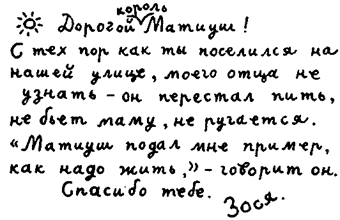 король
Дорогой Матиуш!
С тех пор как ты поселился на
нашей улице, моего отца не
узнать – он перестал пить,
не бьет маму, не ругается.
«Матиуш подал мне пример,
как надо жить,» – говорит он.
Спасибо тебе. Зося.